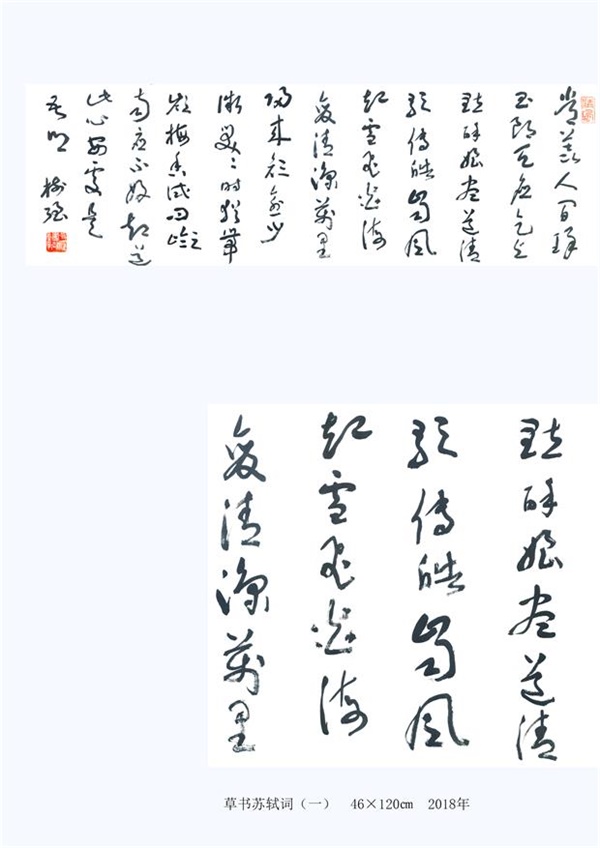 常羡人间琢
玉郎天应乞与
點酥娘尽道清
歌傳皓齿风
起雪飞炎海
变清凉萬里
归来颜愈少
微笑々时犹带
岭梅香试问岭
南应不好却道
此心安处是
吾乡
點酥娘尽道清
歌傳皓齿风
起雪飞炎海
变清凉萬里
草书苏轼词（一） 46×120cm 2018年